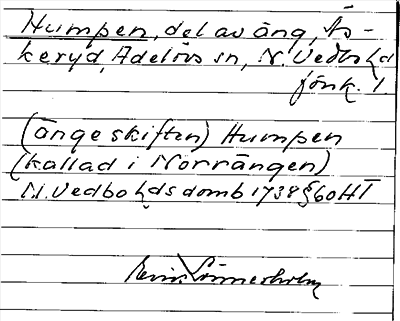 Humpen, del av äng, Ås-
keryd, Adelövs sn, N. Vedbo hd
Jönk. l
(ängeskiften) Humpen
(kallad i Norrängen)
N. Vedbo hds domb 1738 § 60 HT